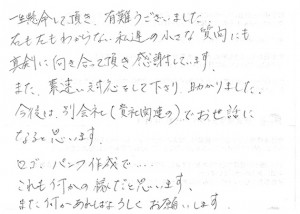 一生懸命して頂き、有難うございました。
右も左もわからない私達の小さな質問にも
真剣に向き合って頂き感謝しています。
また、素速い対応をして下さり助かりました。
今後は、別会社(貴社関連の)でお世話に
なると思います。
ロゴ、パンフ作成で・・・
これも何かの縁だと思います。
また何かあればよろしくお願いします。